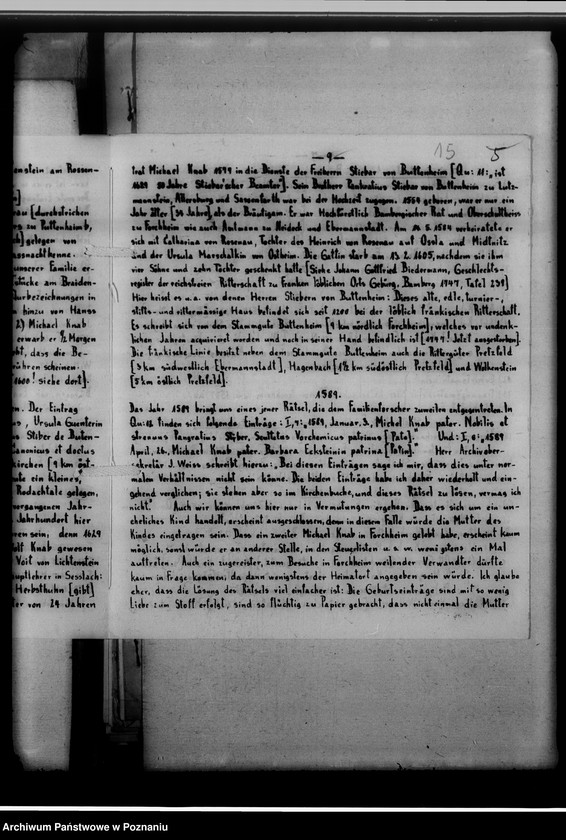 15 5
— 9 —
enstein am Rossen-
[durchstrichen
zu Buttenheim,
gelegen von
asnachtkenne.
unserer Familie er-
stücke am Breiden-
lurbezeichnungen in
n hinzu von Hanss
2) Michael Knab
erwarb er ½ Morgen
, dass die Be-
rühren scheinen.
1600! siehe dort].
en. Der Eintrag
, Ursula Guenterin
Stiber de Buten-
Canonicus et doctus
kirchen [9 km öst-
ein kleines,
Rodachtale gelegen,
vorgangenen Jahr-
Jahrhundert hier
ren sein, denn 1629
Knab gewesen
Voit von Lichtenstein
uptlehrer in Sesslach:
Herbsthuhn [gibt]
ter von 24 Jahren
trat Michael Knab 1579 in die Dienste der Freiherrn Stiebar von Buttenheim [Qu: 11: „ist
1629 50 Jahre Stiebar'scher Beamter]. Sein Dienstherr Pankratius Stiebar von Buttenheim zu Lutz-
mannstein, Allersburg und Sassanfarth war bei der Hochzeit zugegen. 1554 geboren, war er nur ein
Jahr älter [34 Jahre], als der Bräutigam. Er war Hochfürstlich Bambergischer Rat und Oberschultheiss
zu Forchheim wie auch Amtmann zu Neideck und Ebermannstadt. Am 14. 5. 1584 verheiratete er
sich mit Catharina von Rosenau, Tochter des Heinrich von Rosenau auf Oesla und Midtnitz
und der Ursula Marschalkin von Ostheim. Die Gattin starb am 13. 2. 1605, nachdem sie ihm
vier Söhne und zehn Töchter geschenkt hatte [Siehe Johann Gottfried Biedermann, Geschlechts-
register der reichsfreien Ritterschaft zu Franken löblichen Orts Gebürg, Bamberg 1747, Tafel 239]
Hier heisst es u. a. von denen Herren Stiebern von Buttenheim: Dieses alte, edle, turnier-,
stifts- und rittermässige Haus befindet sich seit 1200 bei der löblich fränkischen Ritterschaft.
Es schreibt sich von dem Stammgute Buttenheim [9 km nördlich Forchheim], welches vor undenk-
lichen Jahren acquiriert worden und noch in seiner Hand befindlich ist [1747! Jetzt ausgestorben].
Die fränkische Linie besitzt neben dem Stammgute Buttenheim auch die Rittergüter Pretzfeld
[3 km südwestlich Ebermannstadt], Hagenbach [1½ km südöstlich Pretzfeld] und Wolkenstein
[5 km östlich Pretzfeld].
1589.
Das Jahr 1589 bringt uns eines jener Rätsel, die dem Familienforscher zuweilen entgegentreten. In
Qu: 12 finden sich folgende Einträge: I, 4: „1589, Januar. 3., Michel Knab pater. Nobilis et
strenuus Pangratius Stiber, Scultatus Vorchemicus patrinus [Pate].“ Und: I, 6: „1589
April. 26. Michael Knab pater. Barbara Ecksteinin patrina [Patin].“ Herr Archivober-
sekretär J. Weiss schreibt hierzu: „Bei diesen Einträgen sage ich mir, dass dies unter nor-
malen Verhältnissen nicht sein könne. Die beiden Einträge habe ich daher wiederholt und ein-
gehend verglichen; sie stehen aber so im Kirchenbuche, und dieses Rätsel zu lösen, vermag ich
nicht.“ Auch wir können uns hier nur in Vermutungen ergehen. Dass es sich um ein un-
eheliches Kind handelt, erscheint ausgeschlossen, denn in diesem Falle würde die Mutter des
Kindes eingetragen sein. Dass ein zweiter Michael Knab in Forchheim gelebt habe, erscheint kaum
möglich, sonst würde er an anderer Stelle, in den Steuerlisten u. s. w. wenigstens ein Mal
auftreten. Auch ein zugereister, zum Besuche in Forchheim weilender Verwandter dürfte
kaum in Frage kommen; da dann wenigstens der Heimatort angegeben sein würde. Ich glaube
eher, dass die Lösung des Rätsels viel einfacher ist: Die Geburtseinträge sind mit so wenig
Liebe zum Stoff erfolgt, sind so flüchtig zu Papier gebracht, dass nicht einmal die Mutter
Archiwum Państwowe w Poznaniu